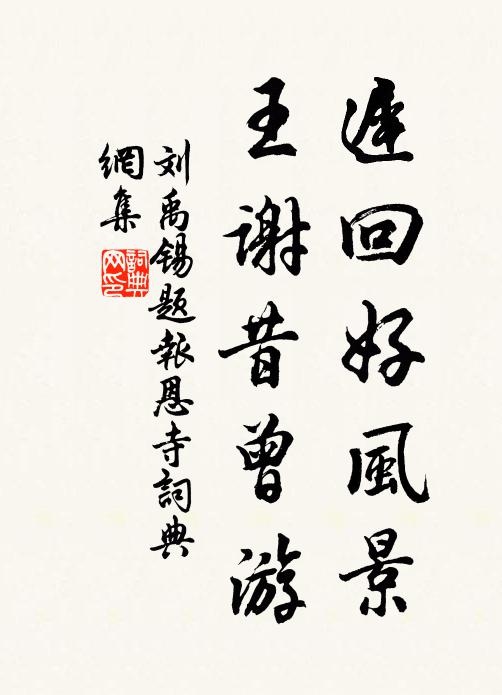 遲回好風景
王謝昔曾游
刘禹锡題報恩寺詞典
網集
詞典
网印